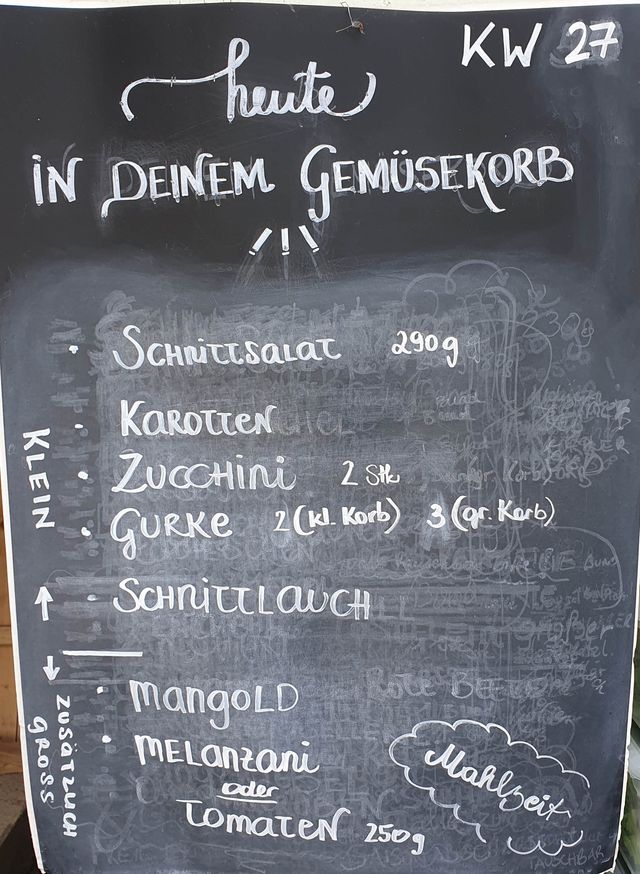 KW 27
heute
IN DEINEM GEMÜSEKORB
KLEIN
• SCHNITTSALAT 290g
• KAROTTEN
• ZUCCHINI 2 Stk
• GURKE 2 (kl. Korb) 3 (gr. Korb)
• SCHNITTLAUCH
ZUSÄTZLICH
GROSS
• MANGOLD
• MELANZANI
oder
TOMATEN 250g
Mahlzeit
TAUSCHBAR